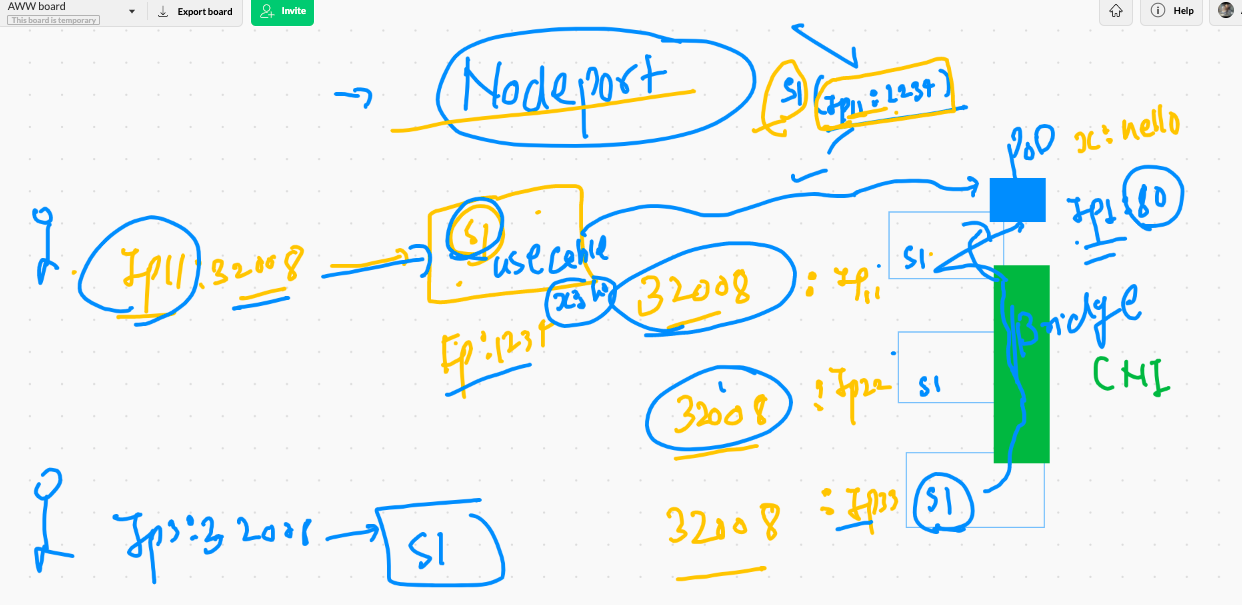 AWW board
This board is temporary
Export board
Invite
Help
Nodeport
S1 (Ip11:1234)
POD
x:hello
Ip1:80
S1
usecase
Ip11:32008
32008 : Ip11
S1
Bridge
Ep:1234
CNI
32008 : Ip22
S1
32008 : Ip33
S1
Ip3:32008
S1